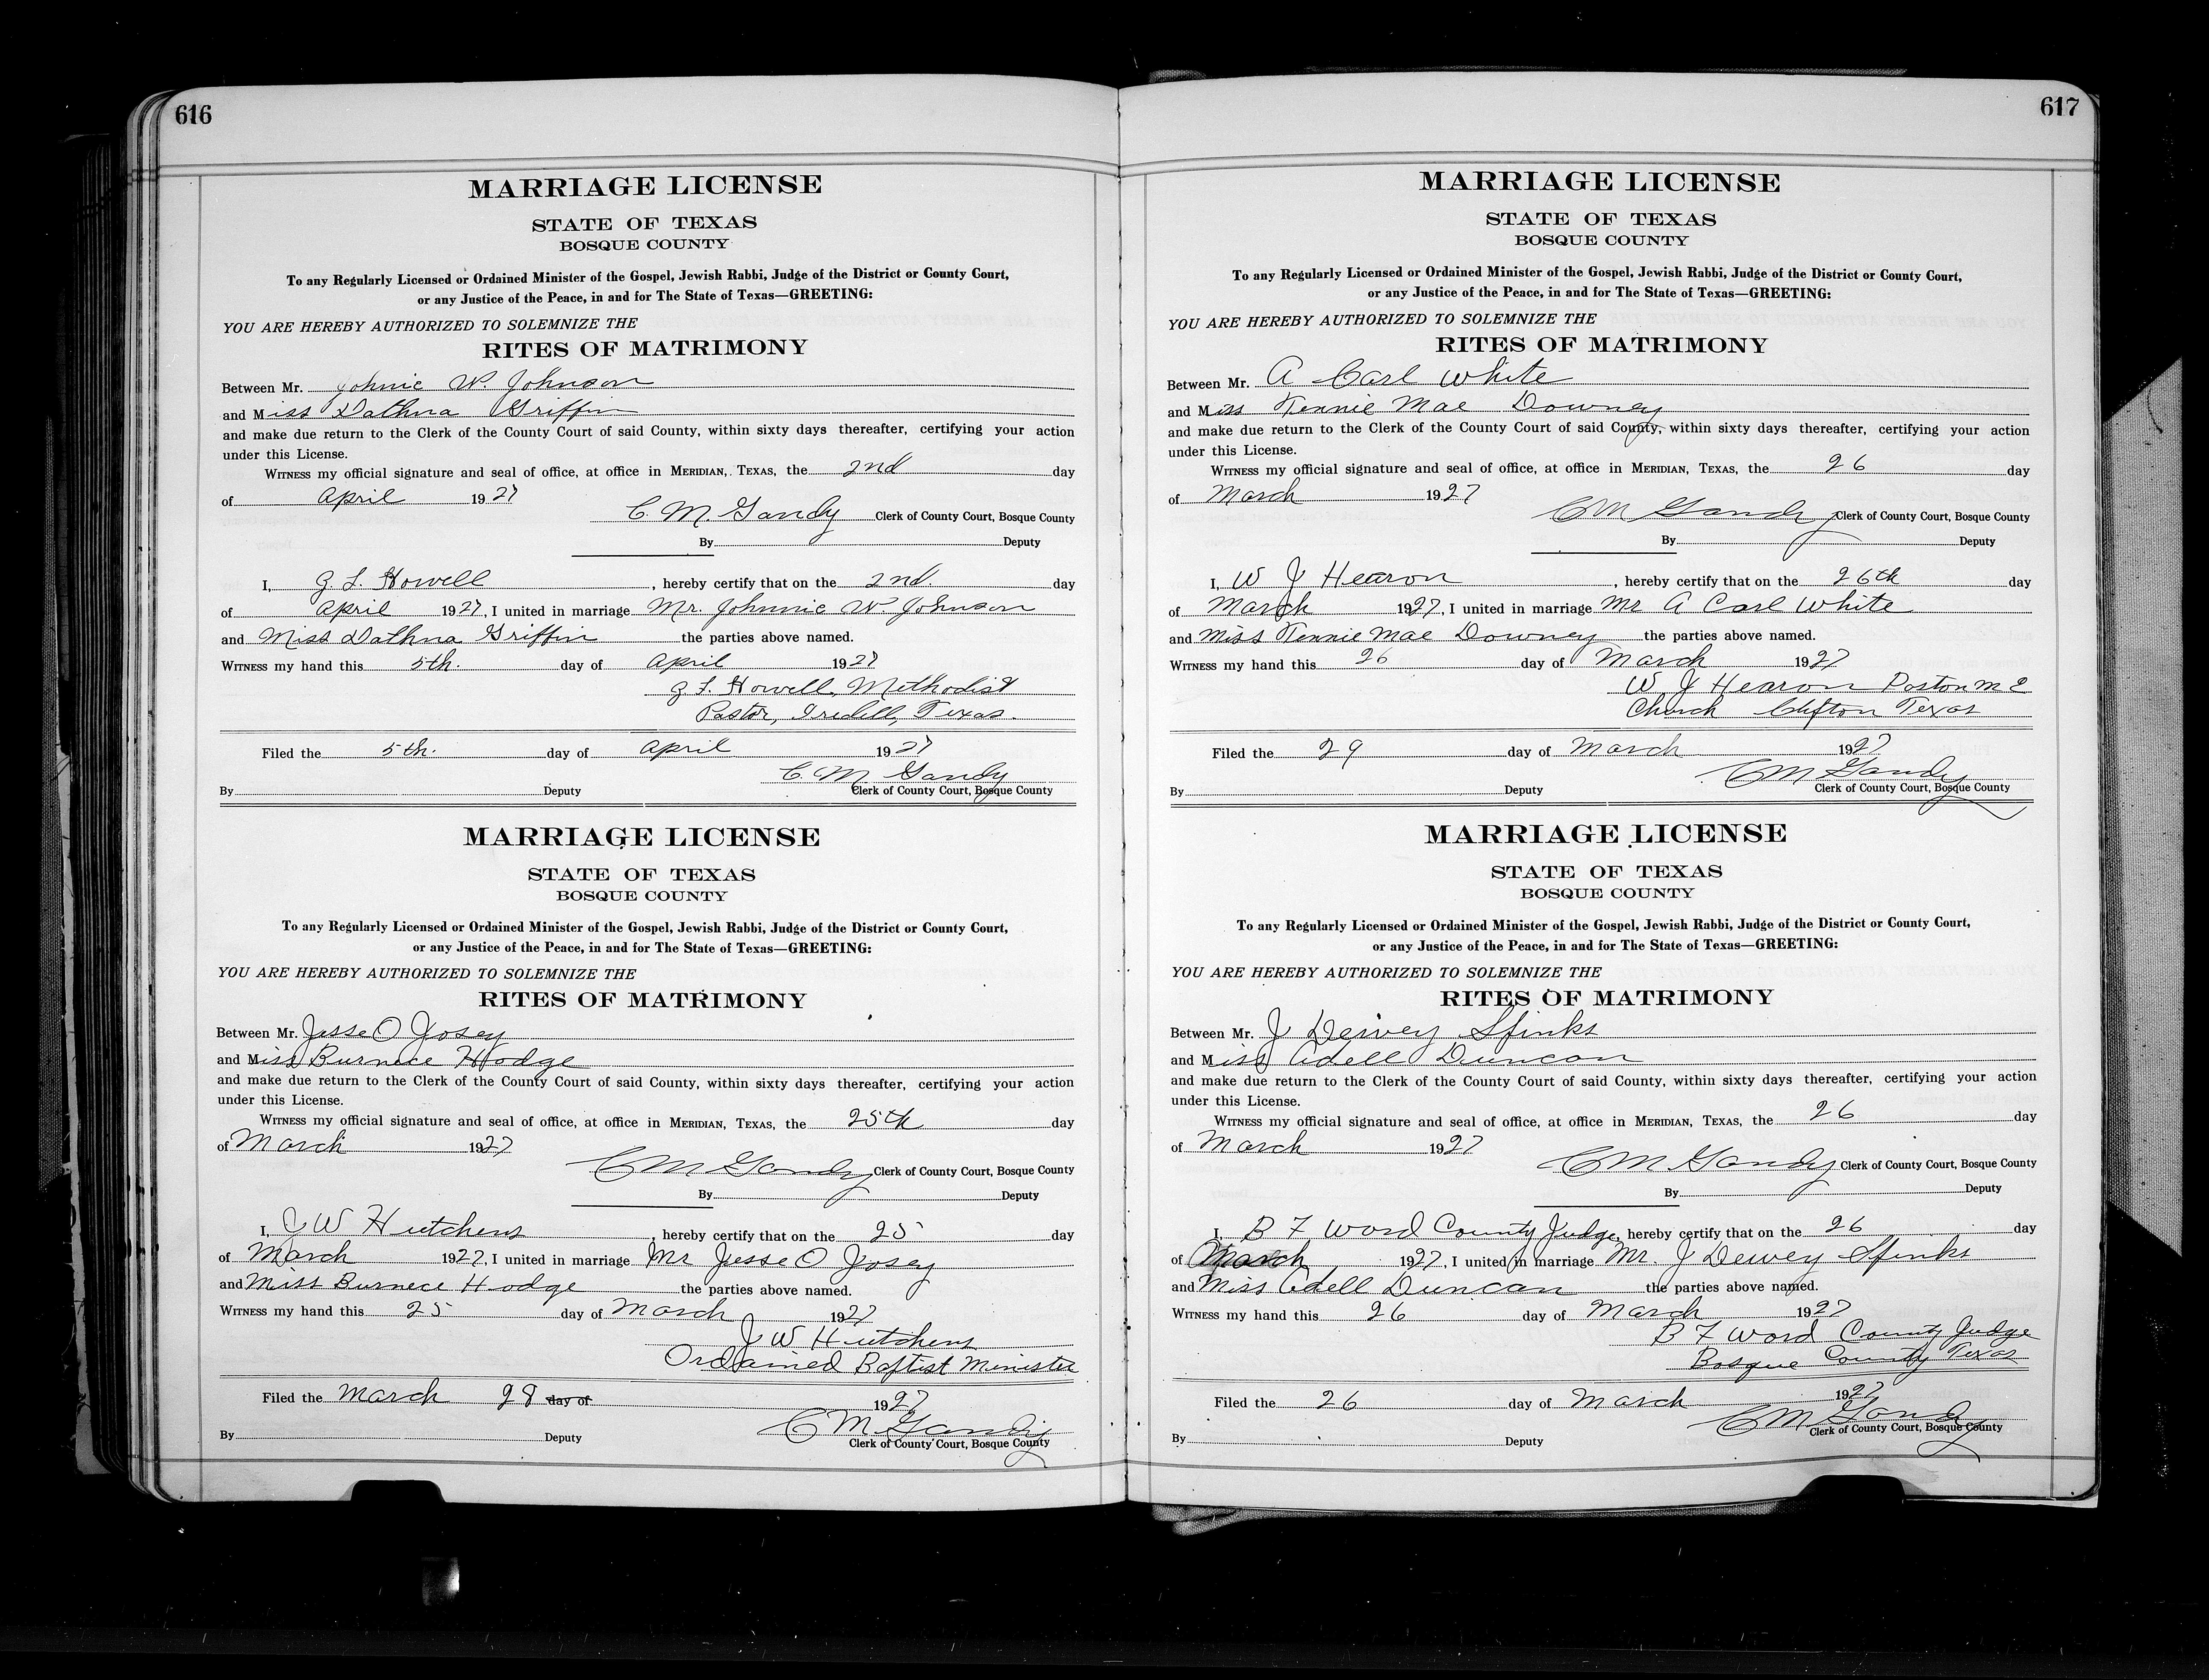 616
MARRIAGE LICENSE
STATE OF TEXAS
BOSQUE COUNTY
To any Regularly Licensed or Ordained Minister of the Gospel, Jewish Rabbi, Judge of the District or County Court,
or any Justice of the Peace, in and for The State of Texas—GREETING:
YOU ARE HEREBY AUTHORIZED TO SOLEMNIZE THE
RITES OF MATRIMONY
Between Mr. Johnie W. Johnson
and Miss Dathna Griffin
and make due return to the Clerk of the County Court of said County, within sixty days thereafter, certifying your action
under this License.
WITNESS my official signature and seal of office, at office in MERIDIAN, TEXAS, the 2nd day
of April 1927
C. M. Gandy Clerk of County Court, Bosque County
By Deputy
I, G. L. Howell, hereby certify that on the 2nd. day
of April 1927, I united in marriage Mr. Johnnie W. Johnson
and Miss Dathna Griffin the parties above named.
WITNESS my hand this 5th. day of April 1927
G. L. Howell, Methodist
Pastor, Iredell, Texas.
Filed the 5th. day of April 1927
C. M. Gandy
By Deputy Clerk of County Court, Bosque County
MARRIAGE LICENSE
STATE OF TEXAS
BOSQUE COUNTY
To any Regularly Licensed or Ordained Minister of the Gospel, Jewish Rabbi, Judge of the District or County Court,
or any Justice of the Peace, in and for The State of Texas—GREETING:
YOU ARE HEREBY AUTHORIZED TO SOLEMNIZE THE
RITES OF MATRIMONY
Between Mr. Jesse O Josey
and Miss Burnece Hodge
and make due return to the Clerk of the County Court of said County, within sixty days thereafter, certifying your action
under this License.
WITNESS my official signature and seal of office, at office in MERIDIAN, TEXAS, the 25th day
of March 1927
C M Gandy Clerk of County Court, Bosque County
By Deputy
I, J W Hutchens, hereby certify that on the 25 day
of March 1927, I united in marriage Mr Jesse O Josey
and Miss Burnece Hodge the parties above named.
WITNESS my hand this 25 day of March 1927
J W Hutchens
Ordained Baptist Minister
Filed the March 28 day of 1927
C M Gandy
By Deputy Clerk of County Court, Bosque County
617
MARRIAGE LICENSE
STATE OF TEXAS
BOSQUE COUNTY
To any Regularly Licensed or Ordained Minister of the Gospel, Jewish Rabbi, Judge of the District or County Court,
or any Justice of the Peace, in and for The State of Texas—GREETING:
YOU ARE HEREBY AUTHORIZED TO SOLEMNIZE THE
RITES OF MATRIMONY
Between Mr. A Carl White
and Miss Tennie Mae Downey
and make due return to the Clerk of the County Court of said County, within sixty days thereafter, certifying your action
under this License.
WITNESS my official signature and seal of office, at office in MERIDIAN, TEXAS, the 26 day
of March 1927
C M Gandy Clerk of County Court, Bosque County
By Deputy
I, W J Hearon, hereby certify that on the 26th day
of March 1927, I united in marriage Mr A Carl White
and Miss Tennie Mae Downey the parties above named.
WITNESS my hand this 26 day of March 1927
W J Hearon Pastor M E
Church Clifton Texas
Filed the 29 day of March 1927
C M Gandy
By Deputy Clerk of County Court, Bosque County
MARRIAGE LICENSE
STATE OF TEXAS
BOSQUE COUNTY
To any Regularly Licensed or Ordained Minister of the Gospel, Jewish Rabbi, Judge of the District or County Court,
or any Justice of the Peace, in and for The State of Texas—GREETING:
YOU ARE HEREBY AUTHORIZED TO SOLEMNIZE THE
RITES OF MATRIMONY
Between Mr. J Dewey Spinks
and Miss Odell Duncan
and make due return to the Clerk of the County Court of said County, within sixty days thereafter, certifying your action
under this License.
WITNESS my official signature and seal of office, at office in MERIDIAN, TEXAS, the 26 day
of March 1927
C M Gandy Clerk of County Court, Bosque County
By Deputy
I, B F Word County Judge, hereby certify that on the 26 day
of March 1927, I united in marriage Mr. J Dewey Spinks
and Miss Odell Duncan the parties above named.
WITNESS my hand this 26 day of March 1927
B F Word County Judge
Bosque County Texas
Filed the 26 day of March 1927
C M Gandy
By Deputy Clerk of County Court, Bosque County